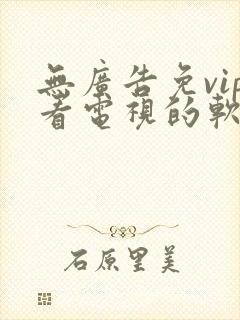 無廣告免vip
看電視的軟
石原里美